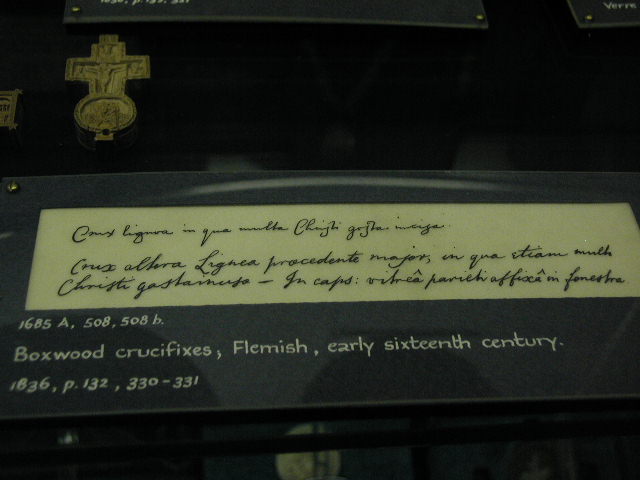 1836, p. 132, 331
Verre
Crux lignea in qua multa Christi gesta incisa.
Crux altera Lignea procedente major, in qua etiam mult
Christi gesta — In caps: vitreâ parieti affixâ in fenestra
1685 A, 508, 508 b.
Boxwood crucifixes, Flemish, early sixteenth century.
1836, p. 132, 330-331